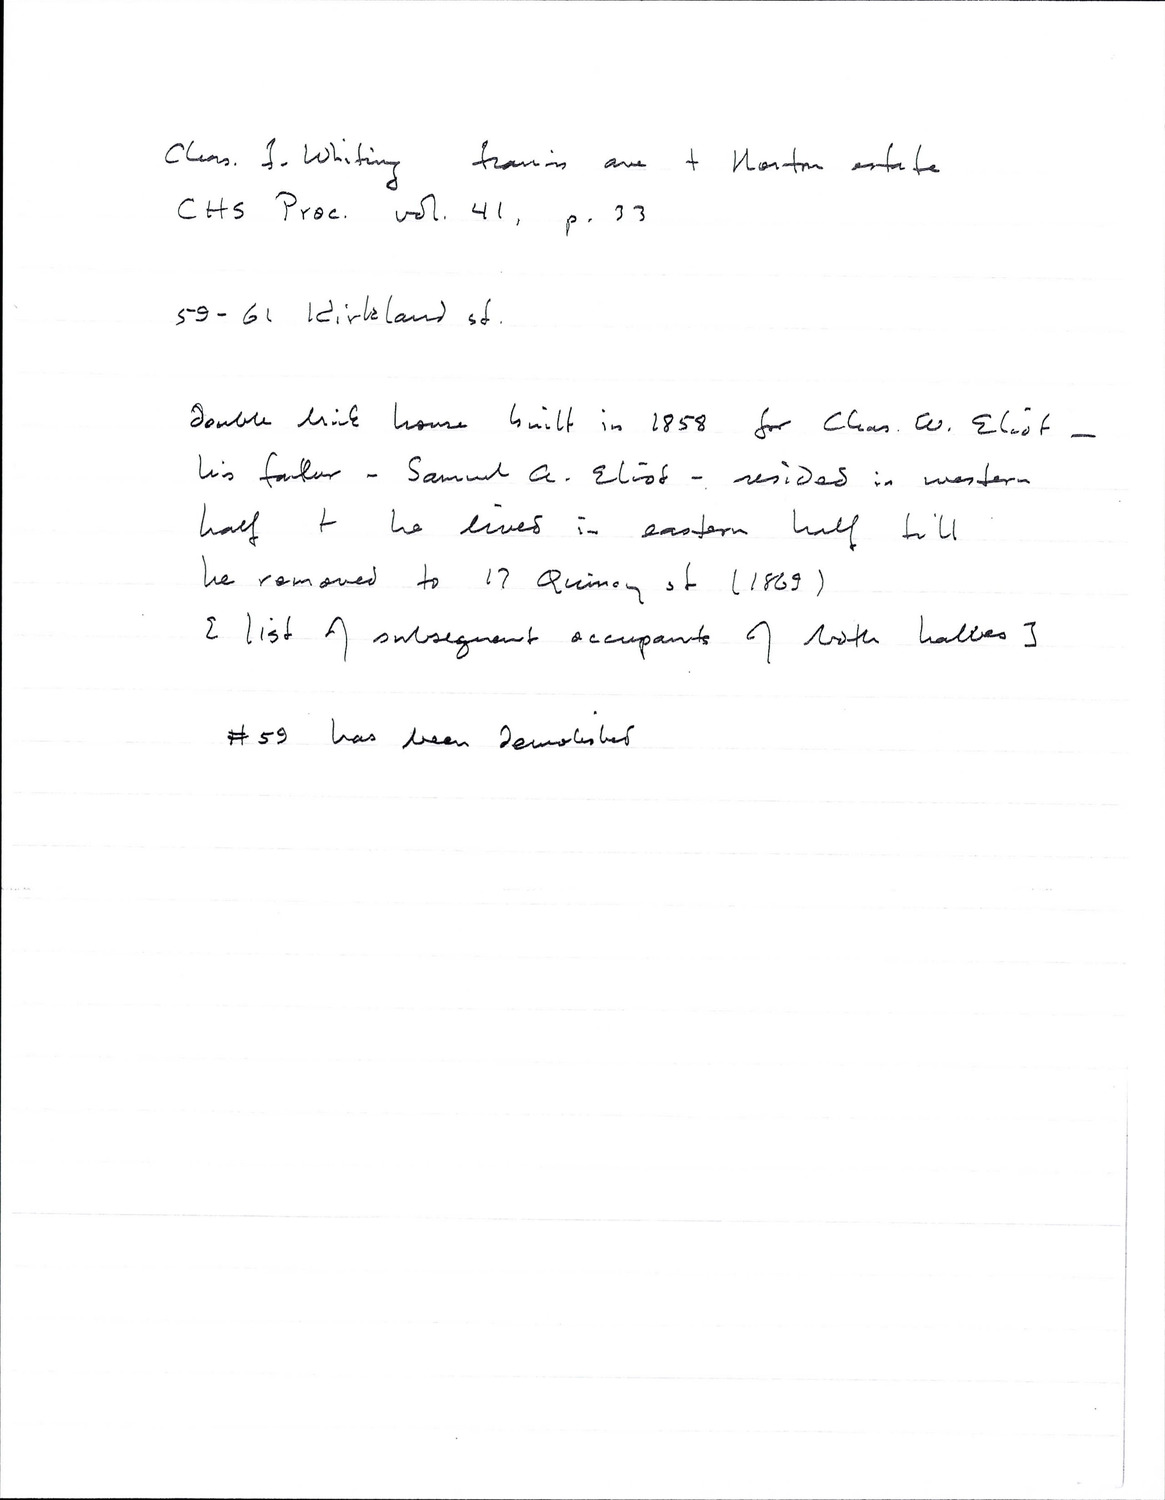 Chas. F. Whiting Francis ave + Norton estate
CHS Proc. vol. 41, p. 33
59-61 Kirkland st.
double brick house built in 1858 for Chas. W. Eliot —
his father - Samuel A. Eliot - resided in western
half + he lived in eastern half till
he removed to 17 Quincy st (1869)
[ list of subsequent occupants of both halves ]
#59 has been demolished